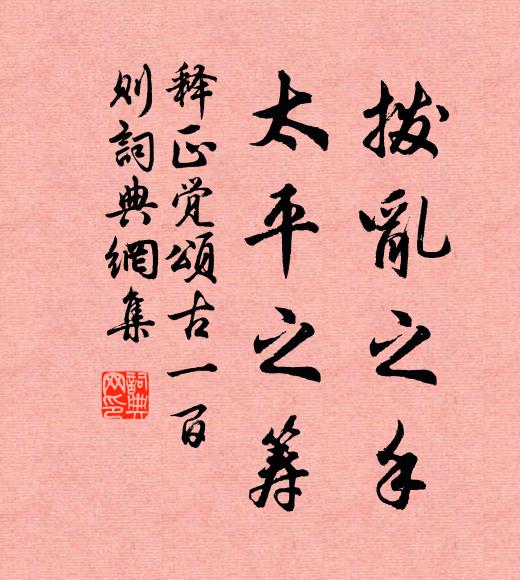 拨亂之手
太平之筹
释正觉頌古一百
则詞典網集
詞典网印